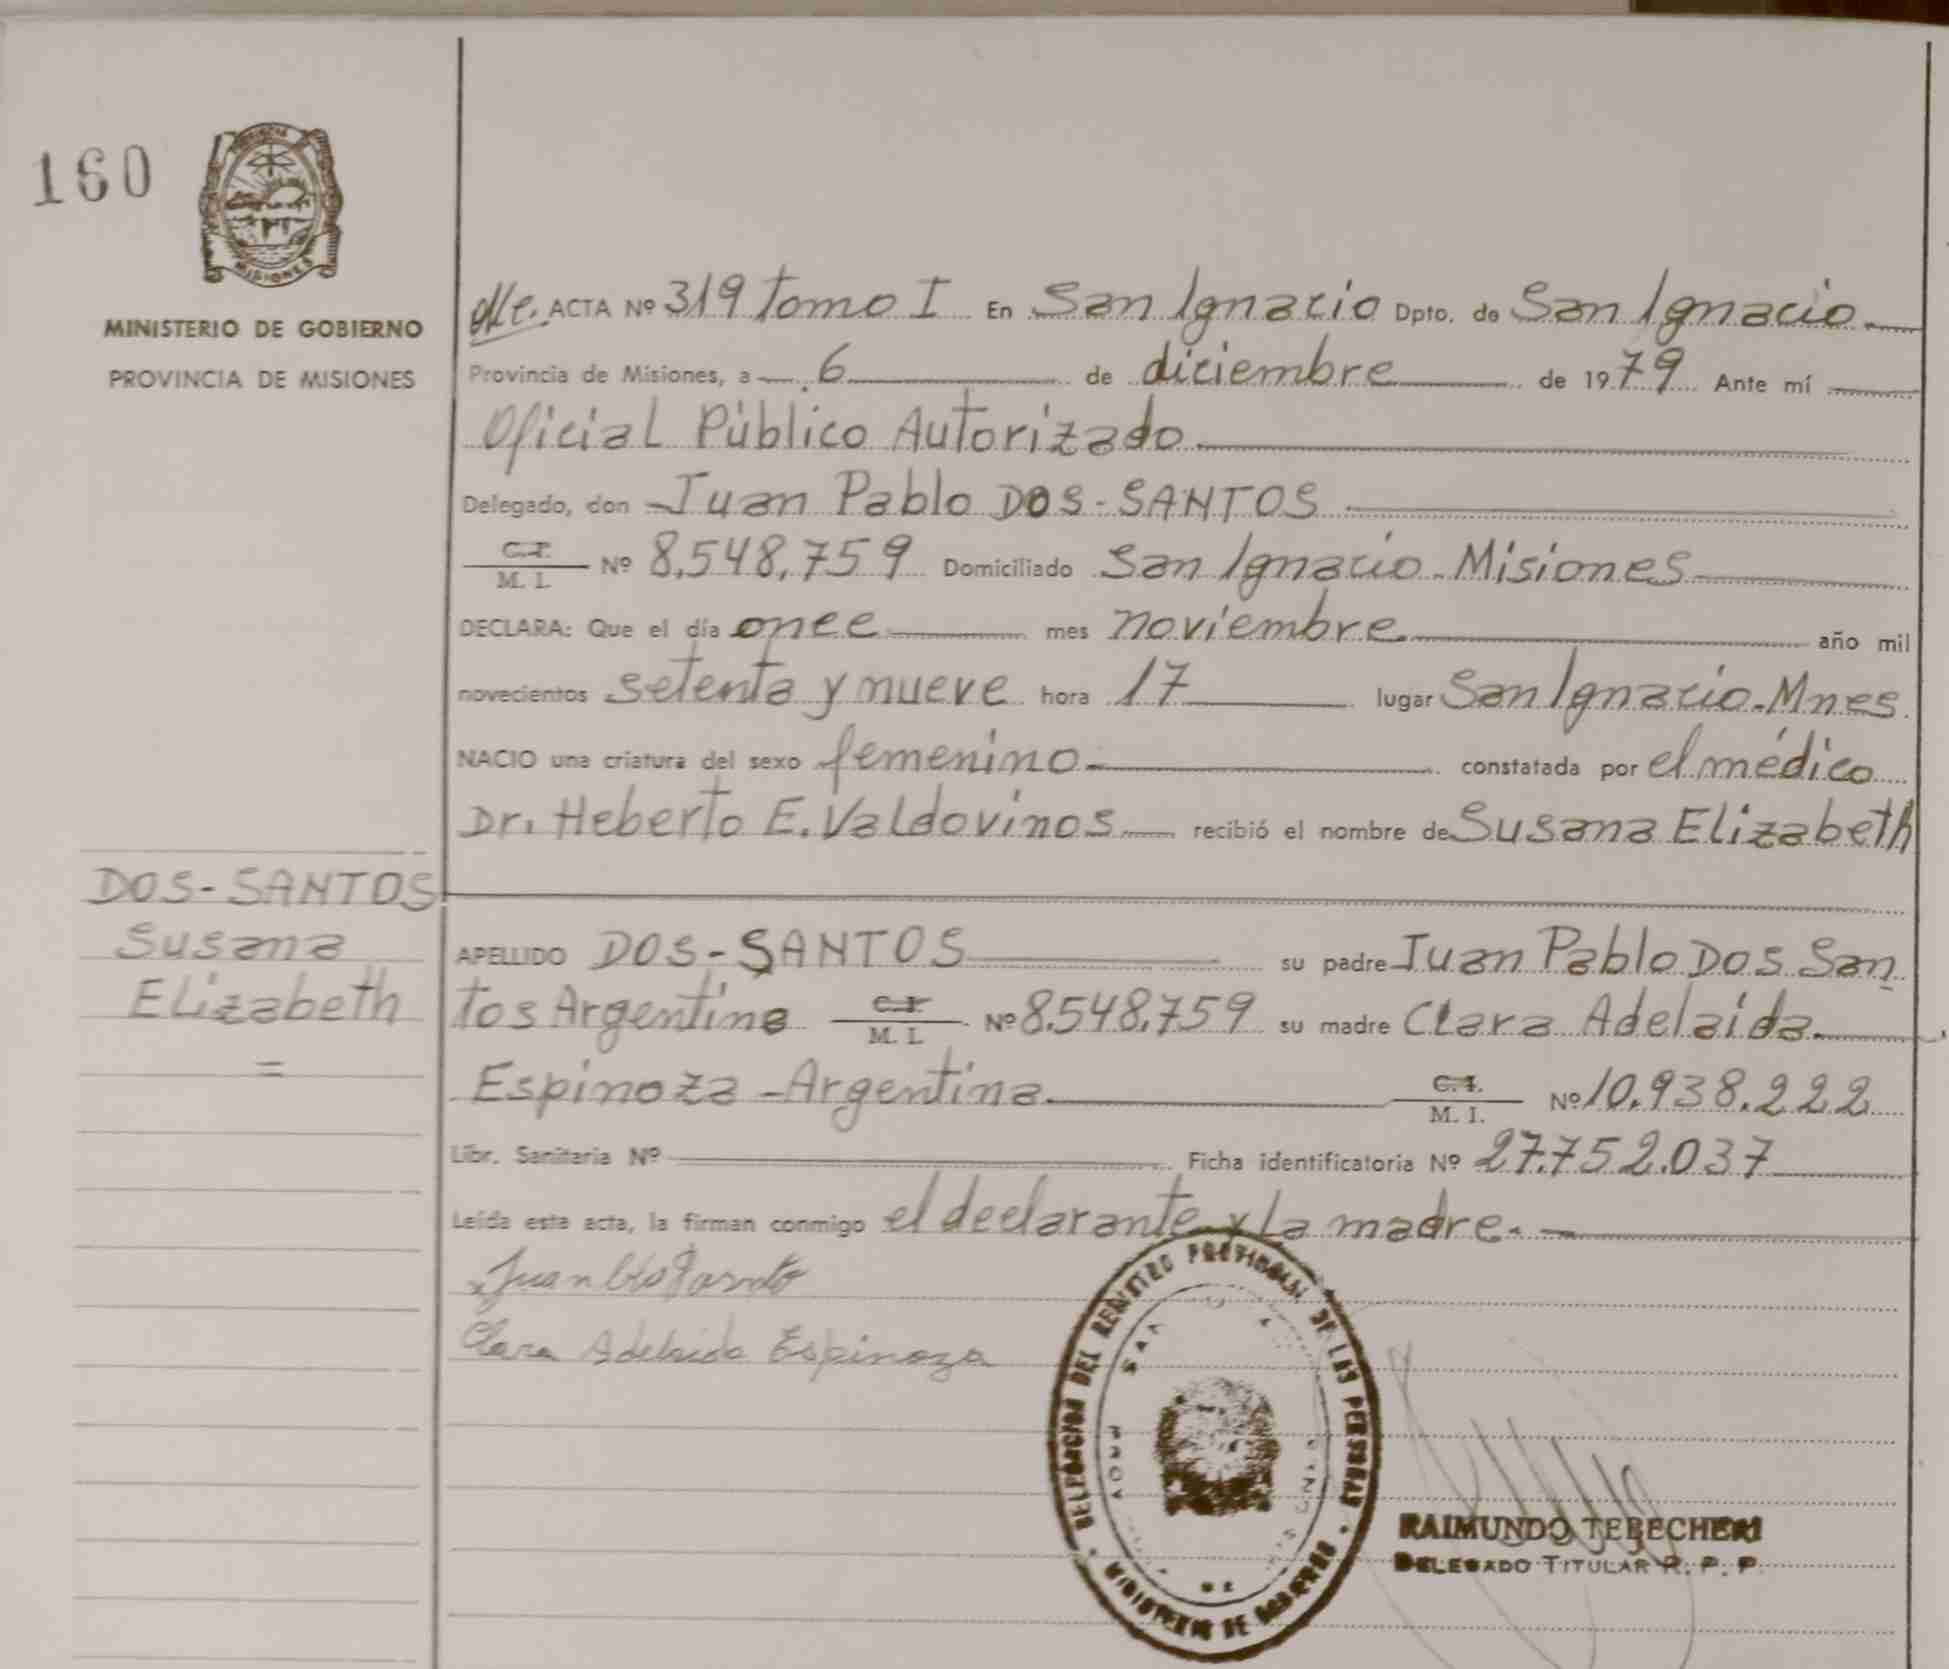 160
MISIONES
MINISTERIO DE GOBIERNO
PROVINCIA DE MISIONES
ACTA Nº 319 Tomo I En San Ignacio Dpto. de San Ignacio
Provincia de Misiones, a 6 de diciembre de 1979 Ante mí
Oficial Público Autorizado
Delegado, don Juan Pablo DOS-SANTOS
C.I.
M. I. Nº 8.548.759 Domiciliado San Ignacio-Misiones
DECLARA: Que el día once mes noviembre año mil
novecientos setenta y nueve hora 17 lugar San Ignacio-Mnes
NACIO una criatura del sexo femenino constatada por el médico
Dr. Heberto E. Valdovinos recibió el nombre de Susana Elizabeth
DOS-SANTOS
Susana
Elizabeth
=
APELLIDO DOS-SANTOS su padre Juan Pablo Dos San
tos Argentino C.I. M. I. Nº 8.548.759 su madre Clara Adelaida
Espinoza-Argentina C.I. M. I. Nº 10.938.222
Libr. Sanitaria Nº Ficha identificatoria Nº 27.752.037
Leída esta acta, la firman conmigo el declarante y La madre.
Clara Adelaida Espinoza
DELEGACION DEL REGISTRO PROVINCIAL DE LAS PERSONAS
MINISTERIO DE GOBIERNO
RAIMUNDO TEBECHERI
DELEGADO TITULAR R. P. P.